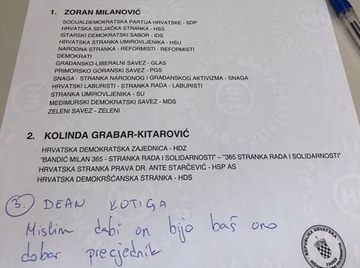 1. ZORAN MILANOVIĆ
SOCIJALDEMOKRATSKA PARTIJA HRVATSKE - SDP
HRVATSKA SELJAČKA STRANKA - HSS
ISTARSKI DEMOKRATSKI SABOR - IDS
HRVATSKA STRANKA UMIROVLJENIKA - HSU
NARODNA STRANKA - REFORMISTI - REFORMISTI
DEMOKRATI
GRAĐANSKO-LIBERALNI SAVEZ - GLAS
PRIMORSKO GORANSKI SAVEZ - PGS
SNAGA - STRANKA NARODNOG I GRAĐANSKOG AKTIVIZMA - SNAGA
HRVATSKI LABURISTI - STRANKA RADA - LABURISTI
STRANKA UMIROVLJENIKA - SU
MEĐIMURSKI DEMOKRATSKI SAVEZ - MDS
ZELENI SAVEZ - ZELENI
2. KOLINDA GRABAR-KITAROVIĆ
HRVATSKA DEMOKRATSKA ZAJEDNICA - HDZ
"BANDIĆ MILAN 365 - STRANKA RADA I SOLIDARNOSTI" - "365 STRANKA RADA I SOLIDARNOSTI"
HRVATSKA STRANKA PRAVA DR. ANTE STARČEVIĆ - HSP AS
HRVATSKA DEMOKRŠĆANSKA STRANKA - HDS
3. DEAN KOTIGA
Mislim dabi on bijo baš ono
dobar precjednik
REPUBLIKA HRVATSKA